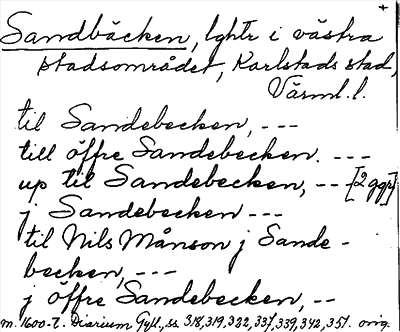 +
Sandbäcken, lghtr i västra
stadsområdet, Karlstads stad,
Värml. l.
til Sandebecken, ---
till öffre Sandebecken. ---
up til Sandebecken, -- [2 ggr]
j Sandebecken ---
til Nils Månson j Sande-
becken, ---
j öffre Sandebecken, --
m. 1600-t. Diarium Gyll., ss. 318, 319, 322, 337, 339, 342, 351. orig.